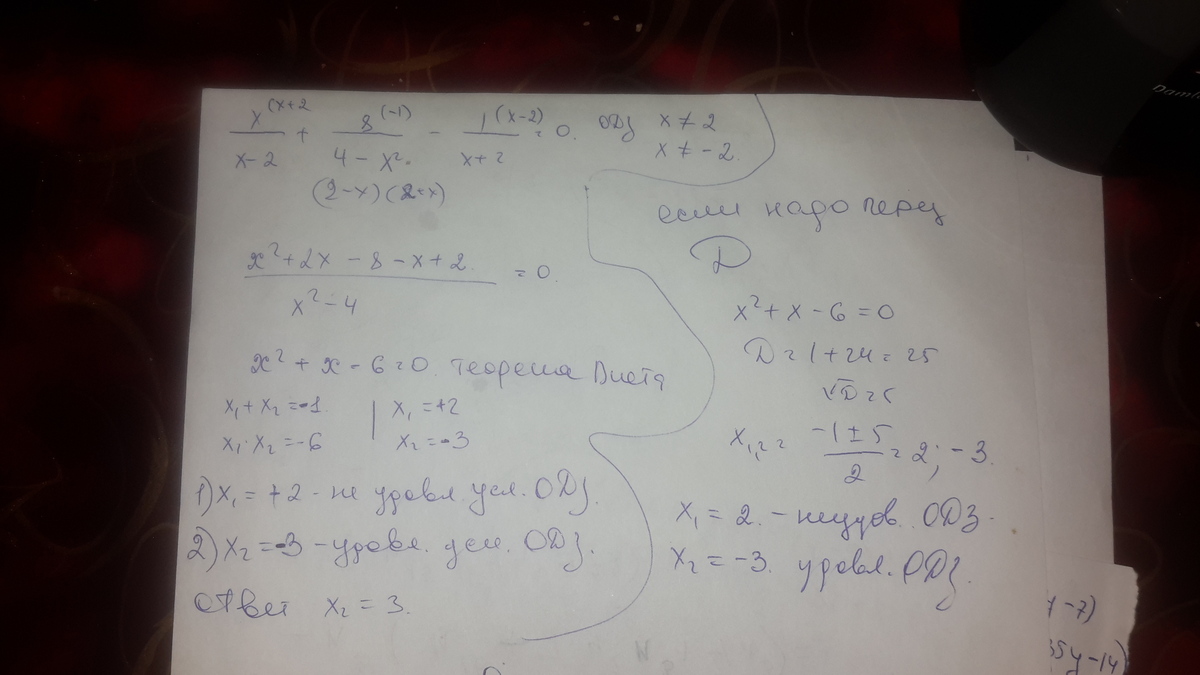 x^(x+2 / x-2 + 8^(-1) / 4-x² - 1^(x-2) / x+2 = 0. ОДЗ x ≠ 2
x ≠ -2.
(2-x)(2+x)
x²+2x-8-x+2 / x²-4 = 0.
x²+x-6=0. теорема Виета
x₁+x₂=-1 | x₁=+2
x₁·x₂=-6 | x₂=-3
1) x₁=+2 - не удовл. усл. ОДЗ.
2) x₂=-3 - удовл. усл. ОДЗ.
Ответ x₂=3.
если надо перез
D
x²+x-6=0
D=1+24=25
√D=5
x₁,₂= -1±5 / 2 = 2; -3.
x₁=2. - неудов. ОДЗ.
x₂=-3. удовл. ОДЗ.
-7)
35y-14)